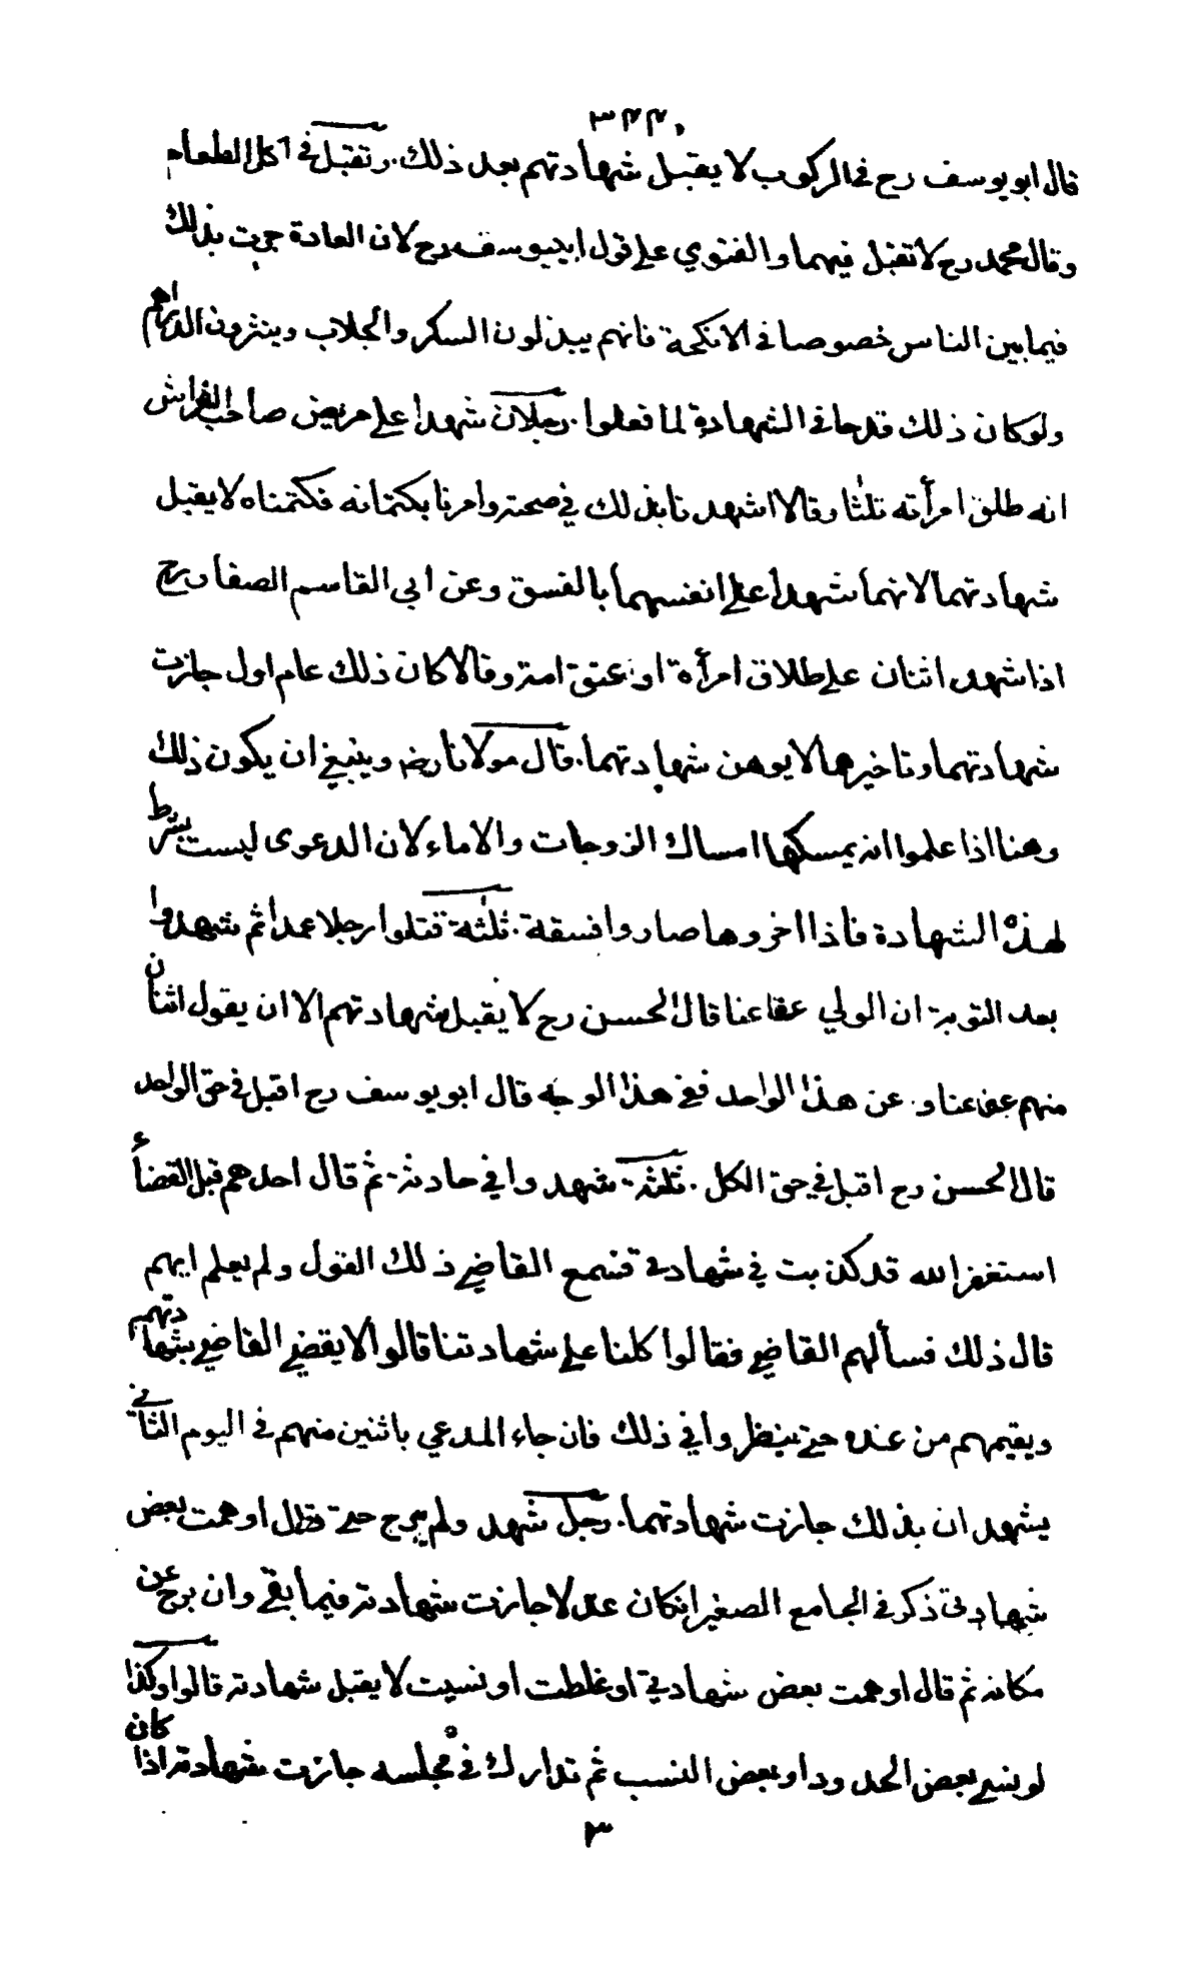 قال ابو يوسف رح في الركوب لا يقبل شهادتهم بعد ذلك. وتقبل في اكل الطعام
وقال محمد رح لا تقبل فيهما والفتوي على قول ابي يوسف رح لان العادة جرت بذلك
فيما بين الناس خصوصا في الانكحة فانهم يبذلون السكر والجلاب وينثرون الدراهم
ولو كان ذلك قدحا في الشهادة لما فعلوا. رجلان شهدا على مريض صاحب الفراش
انه طلق امرأته ثلثا وقالا اشهدنا بذلك في صحته وامرنا بكتمانه فكتمناه لا يقبل
شهادتهما لانهما شهدا على انفسهما بالفسق وعن ابي القاسم الصفار رح
اذا شهد اثنان على طلاق امرأة او عتق امة وقالا كان ذلك عام اول جازت
شهادتهما وتاخيرها لا يوهن شهادتهما. قال مولانا رضـ وينبغي ان يكون ذلك
وهنا اذا علموا انه يمسكها امساك الزوجات والاماء لان الدعوى ليست بشرط
لهذه الشهادة فاذا اخروها صاروا فسقة. ثلثة قتلوا رجلا عمدا ثم شهدوا
بعد التوبة ان الولي عفا عنا قال الحسن رح لا يقبل شهادتهم الا ان يقول اثنان
منهم عفا عنا و عن هذا الواحد ففي هذا الوجه قال ابو يوسف رح اقبل في حق الواحد
قال الحسن رح اقبل في حق الكل. ثلثة شهدوا في حادثة ثم قال احدهم قبل القضاء
استغفر الله قد كذبت في شهادتي فسمع القاضي ذلك القول ولم يعلم ايهم
قال ذلك فسألهم القاضي فقالوا كلنا على شهادتنا قالوا لا يقضي القاضي بشهادتهم
ويقيمهم من عنده حتى ينظروا في ذلك فان جاء المدعي باثنين منهم في اليوم الثاني
يشهدان بذلك جازت شهادتهما. رجل شهد ولم يبرح حتى قال اوهمت بعض
شهادتي ذكر في الجامع الصغير ان كان عدلا جازت شهادته فيما بقي وان برح عن
مكانه ثم قال اوهمت بعض شهادتي او غلطت او نسيت لا يقبل شهادته قالوا وكذا
لو نسي بعض الحدود او بعض النسب ثم تدارك في مجلسه جازت شهادته اذا كان
٣